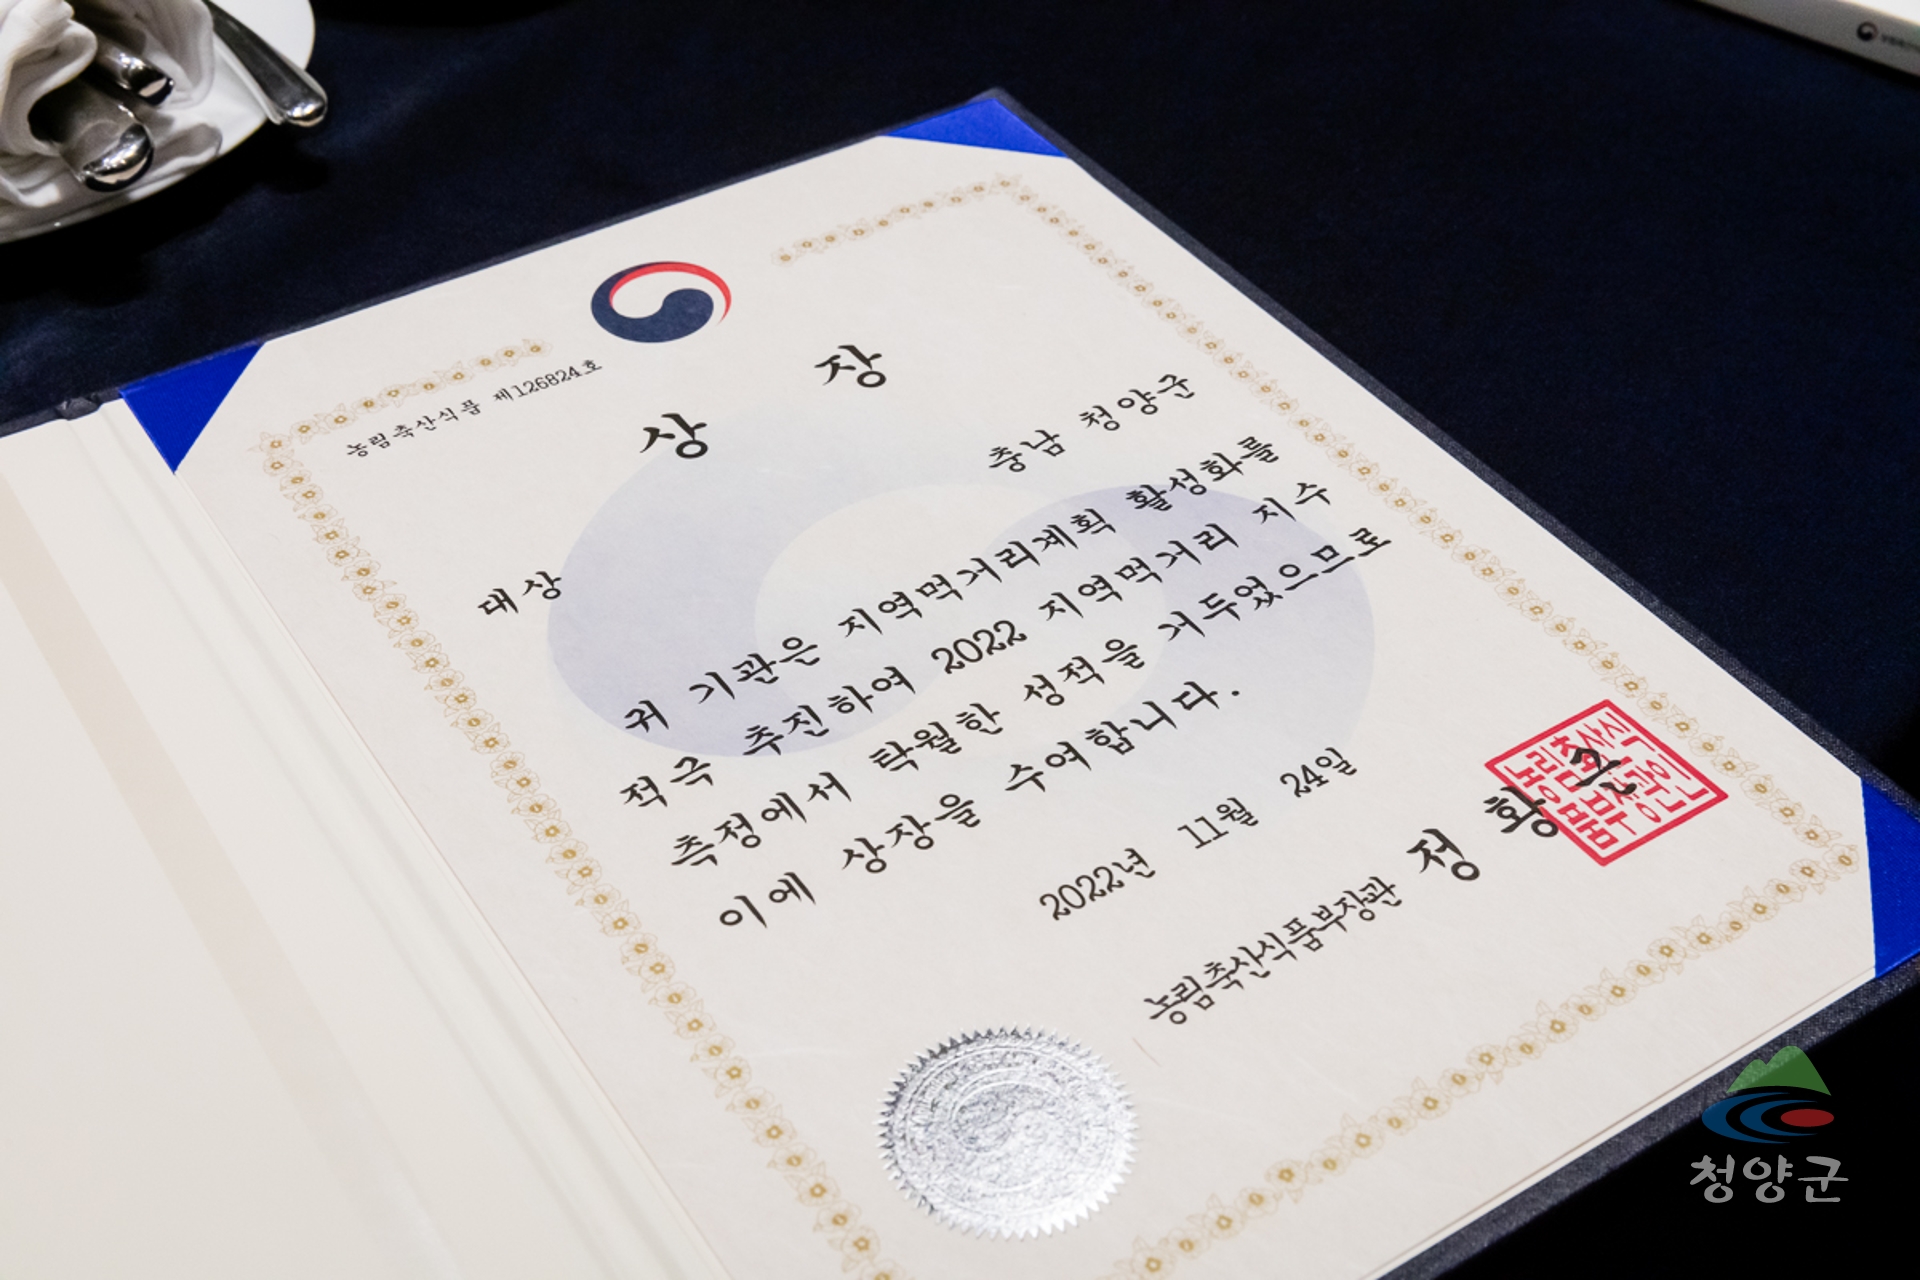 농림축산식품 제126824호
상 장
대상
충남 청양군
귀 기관은 지역먹거리계획 활성화를
적극 추진하여 2022 지역먹거리 지수
측정에서 탁월한 성적을 거두었으므로
이에 상장을 수여합니다.
2022년 11월 24일
농림축산식품부장관 정 황 근
농림축산식
품부장관인
청양군